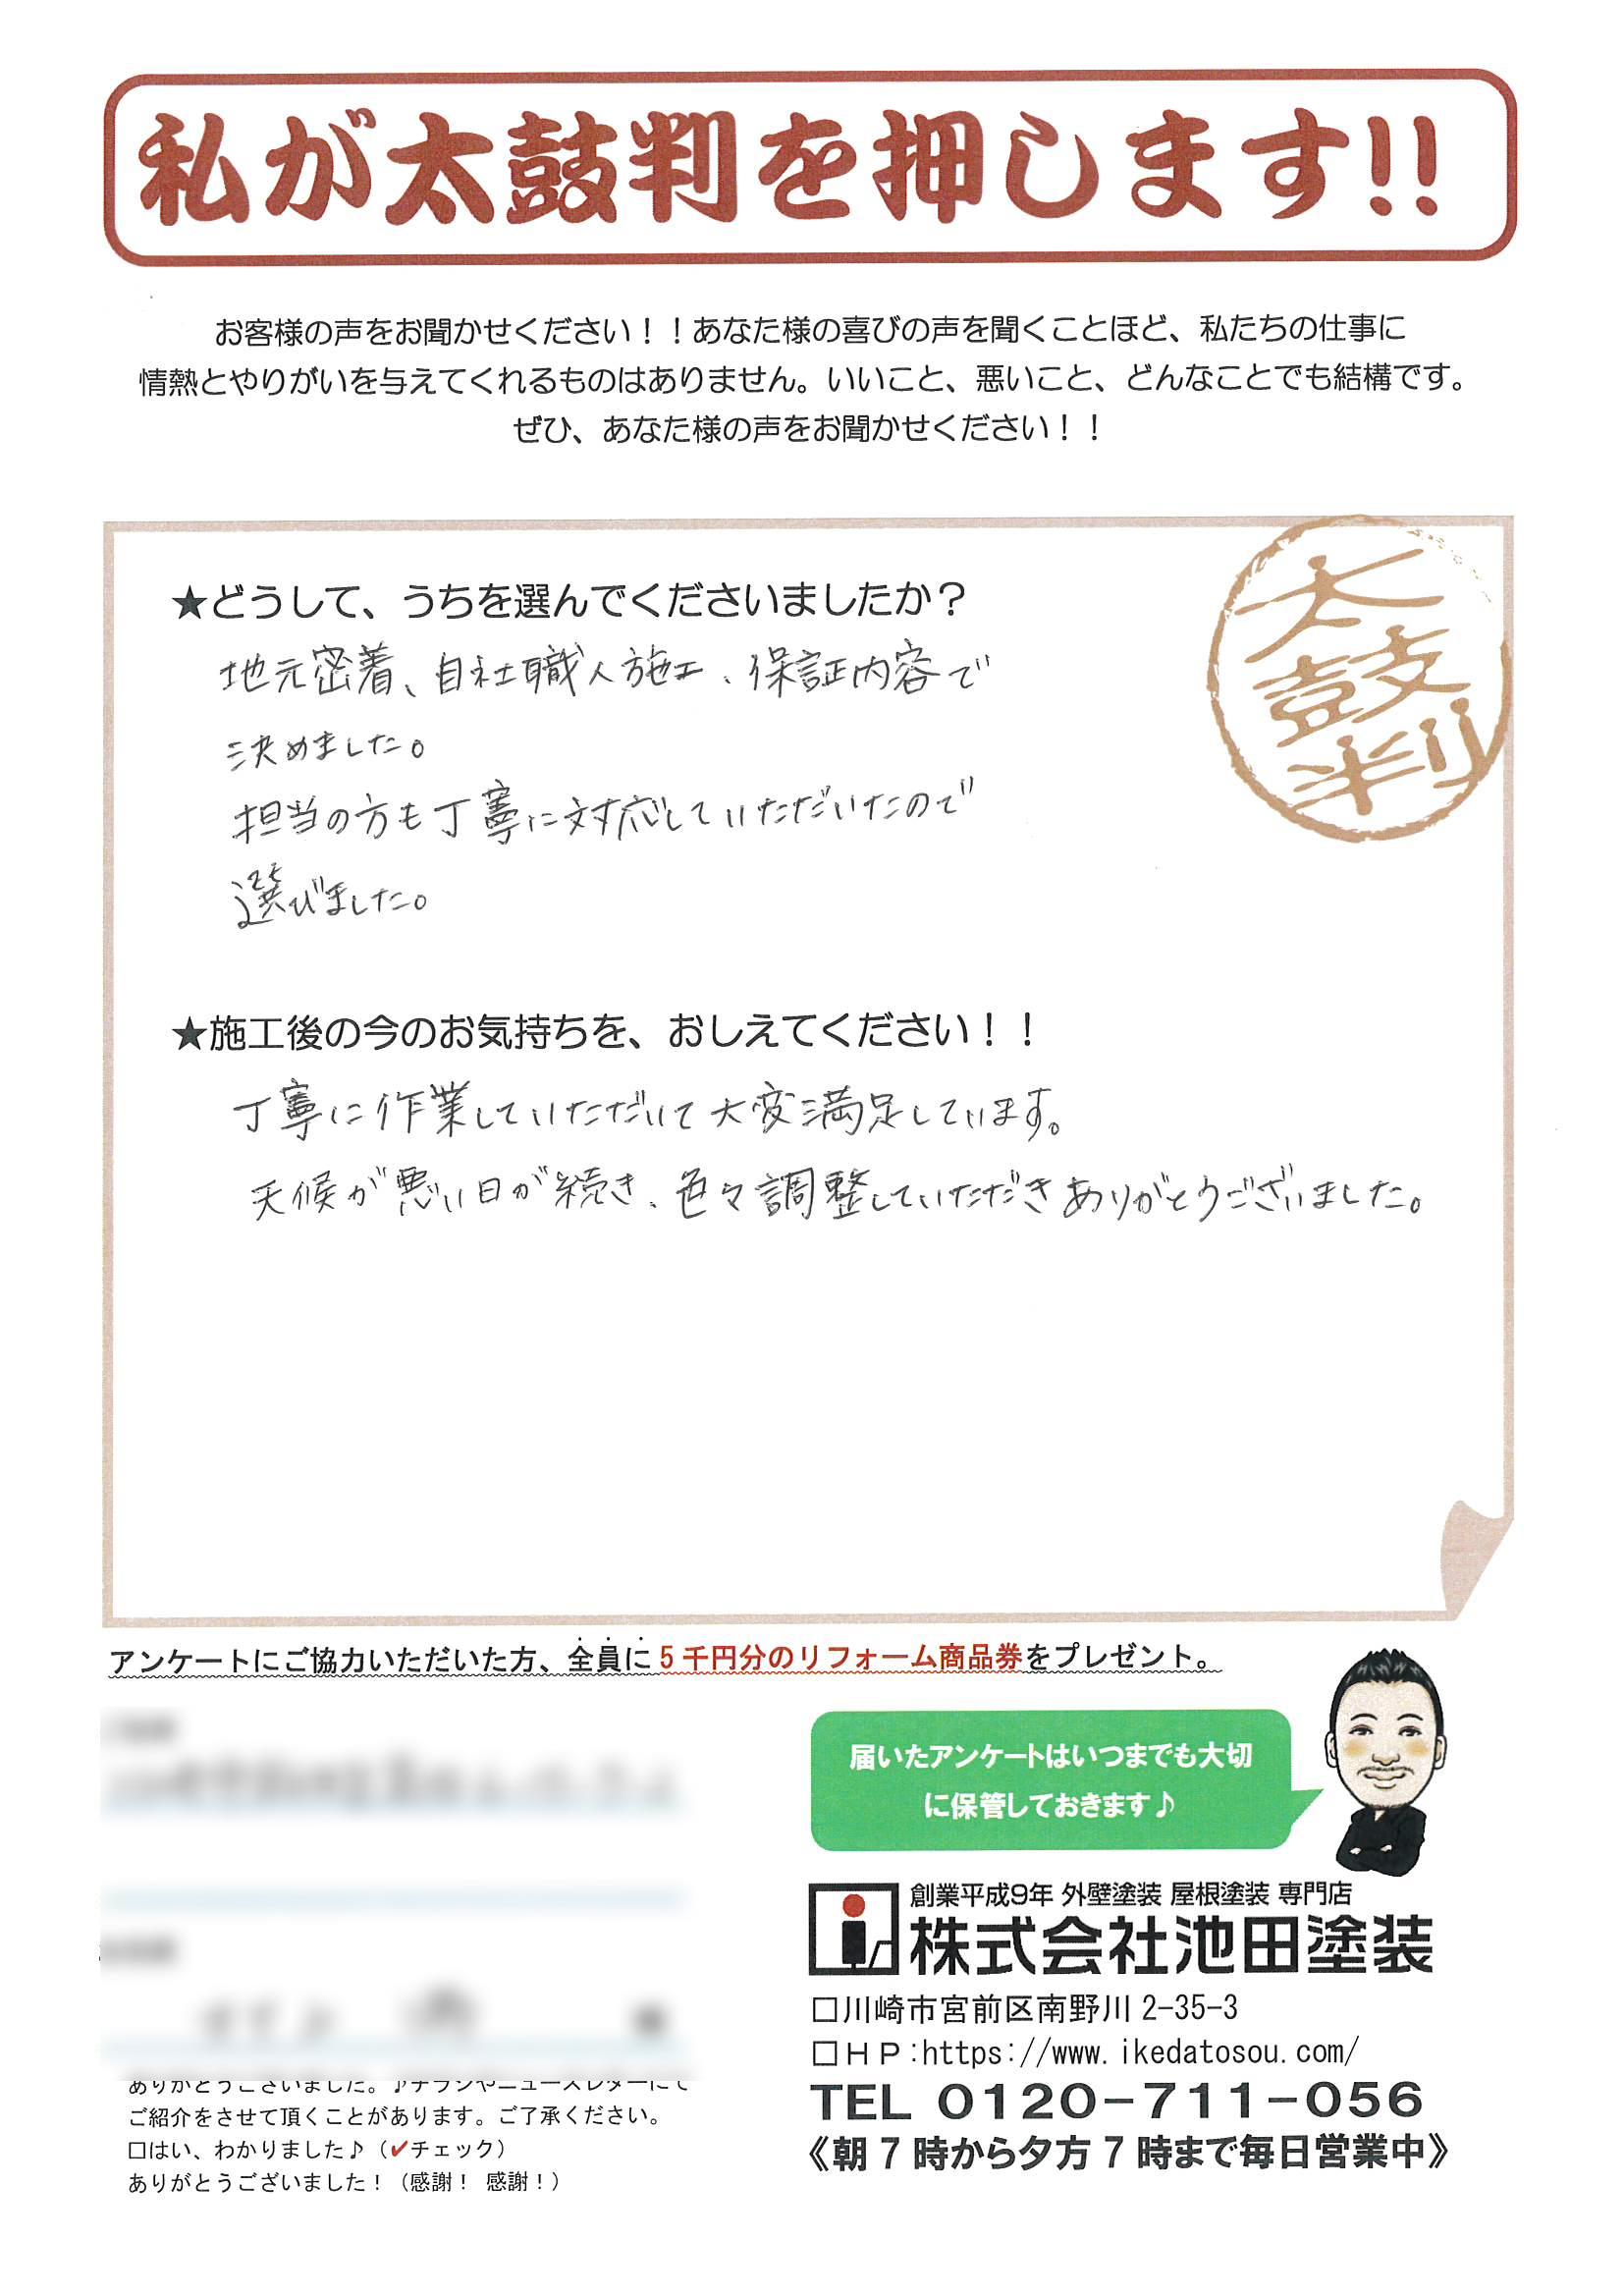 私が太鼓判を押します!!
お客様の声をお聞かせください！！あなた様の喜びの声を聞くことほど、私たちの仕事に
情熱とやりがいを与えてくれるものはありません。いいこと、悪いこと、どんなことでも結構です。
ぜひ、あなた様の声をお聞かせください！！
太
鼓
判
★どうして、うちを選んでくださいましたか？
地元密着、自社職人施工、保証内容で
決めました。
担当の方も丁寧に対応していただいたので
選びました。
★施工後の今のお気持ちを、おしえてください！！
丁寧に作業していただいて大変満足しています。
天候が悪い日が続き、色々調整していただきありがとうございました。
アンケートにご協力いただいた方、全員に5千円分のリフォーム商品券をプレゼント。
届いたアンケートはいつまでも大切
に保管しておきます♪
創業平成9年 外壁塗装 屋根塗装 専門店
株式会社池田塗装
□川崎市宮前区南野川2-35-3
□ＨＰ:https://www.ikedatosou.com/
TEL 0120-711-056
《朝7時から夕方7時まで毎日営業中》
ありがとうございました。♪チラシやニュースレターにて
ご紹介をさせて頂くことがあります。ご了承ください。
□はい、わかりました♪（✔チェック）
ありがとうございました！（感謝！ 感謝！）